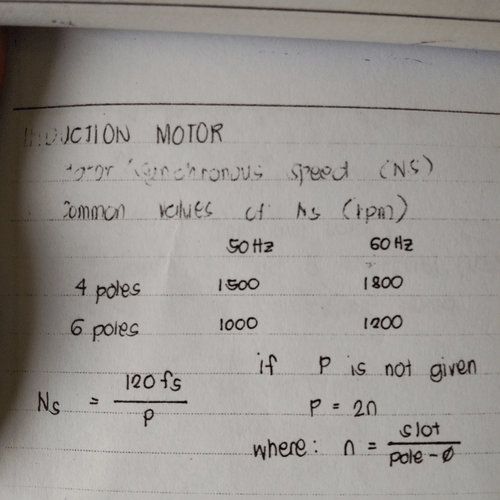 INDUCTION MOTOR
Motor Synchronous speed (NS)
Common values of Ns (rpm)
50 Hz 60 Hz
4 poles 1500 1800
6 poles 1000 1200
if P is not given
Ns = 120 fs / P
P = 2n
where: n = slot / pole - Ø